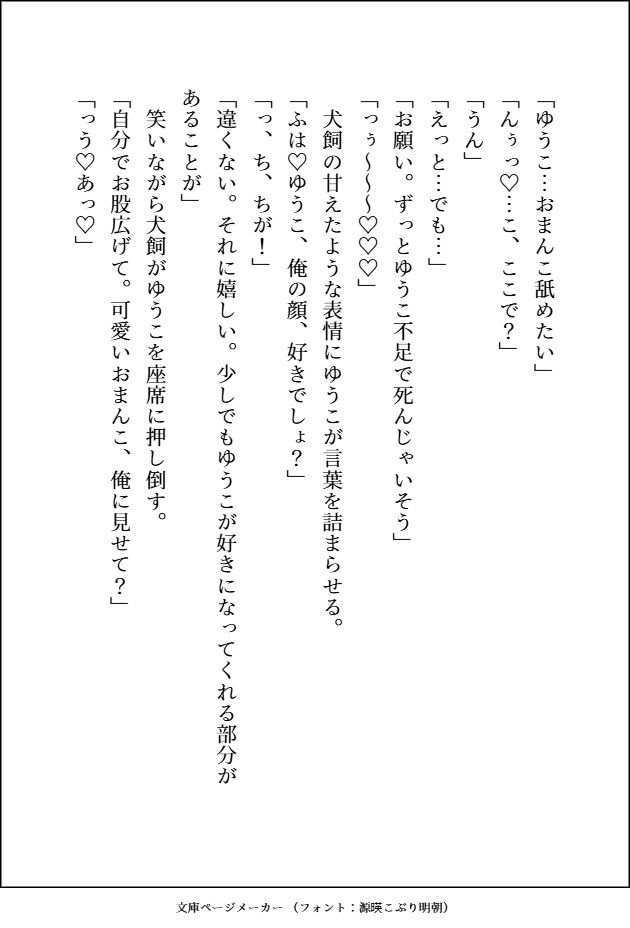 「ゆうこ…おまんこ舐めたい」
「んぅっ♡…こ、ここで？」
「うん」
「えっと…でも…」
「お願い。ずっとゆうこ不足で死んじゃいそう」
「っぅ～～～♡♡♡」
　犬飼の甘えたような表情にゆうこが言葉を詰まらせる。
「ふは♡ゆうこ、俺の顔、好きでしょ？」
「っ、ち、ちが！」
「違くない。それに嬉しい。少しでもゆうこが好きになってくれる部分が
あることが」
　笑いながら犬飼がゆうこを座席に押し倒す。
「自分でお股広げて。可愛いおまんこ、俺に見せて？」
「っう♡あっ♡」
文庫ページメーカー（フォント：源暎こぶり明朝）